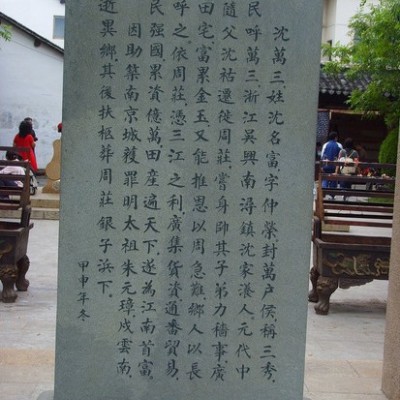 沈萬三姓沈名富字仲榮封萬户侯稱三秀
民呼萬三浙江吳興南潯鎮沈家漾人元代中
隨父沈祐遷徙周莊嘗身帥其子弟力穡事廣
田宅富累金玉又能推恩以周急難鄉人以長
呼之依周莊憑三江之利廣集貨資通番貿易
民强國累資億萬田產遍天下遂為江南首富
因助築南京城獲罪明太祖朱元璋戍雲南
逝異鄉其後扶柩葬周莊銀子浜下
甲申年冬